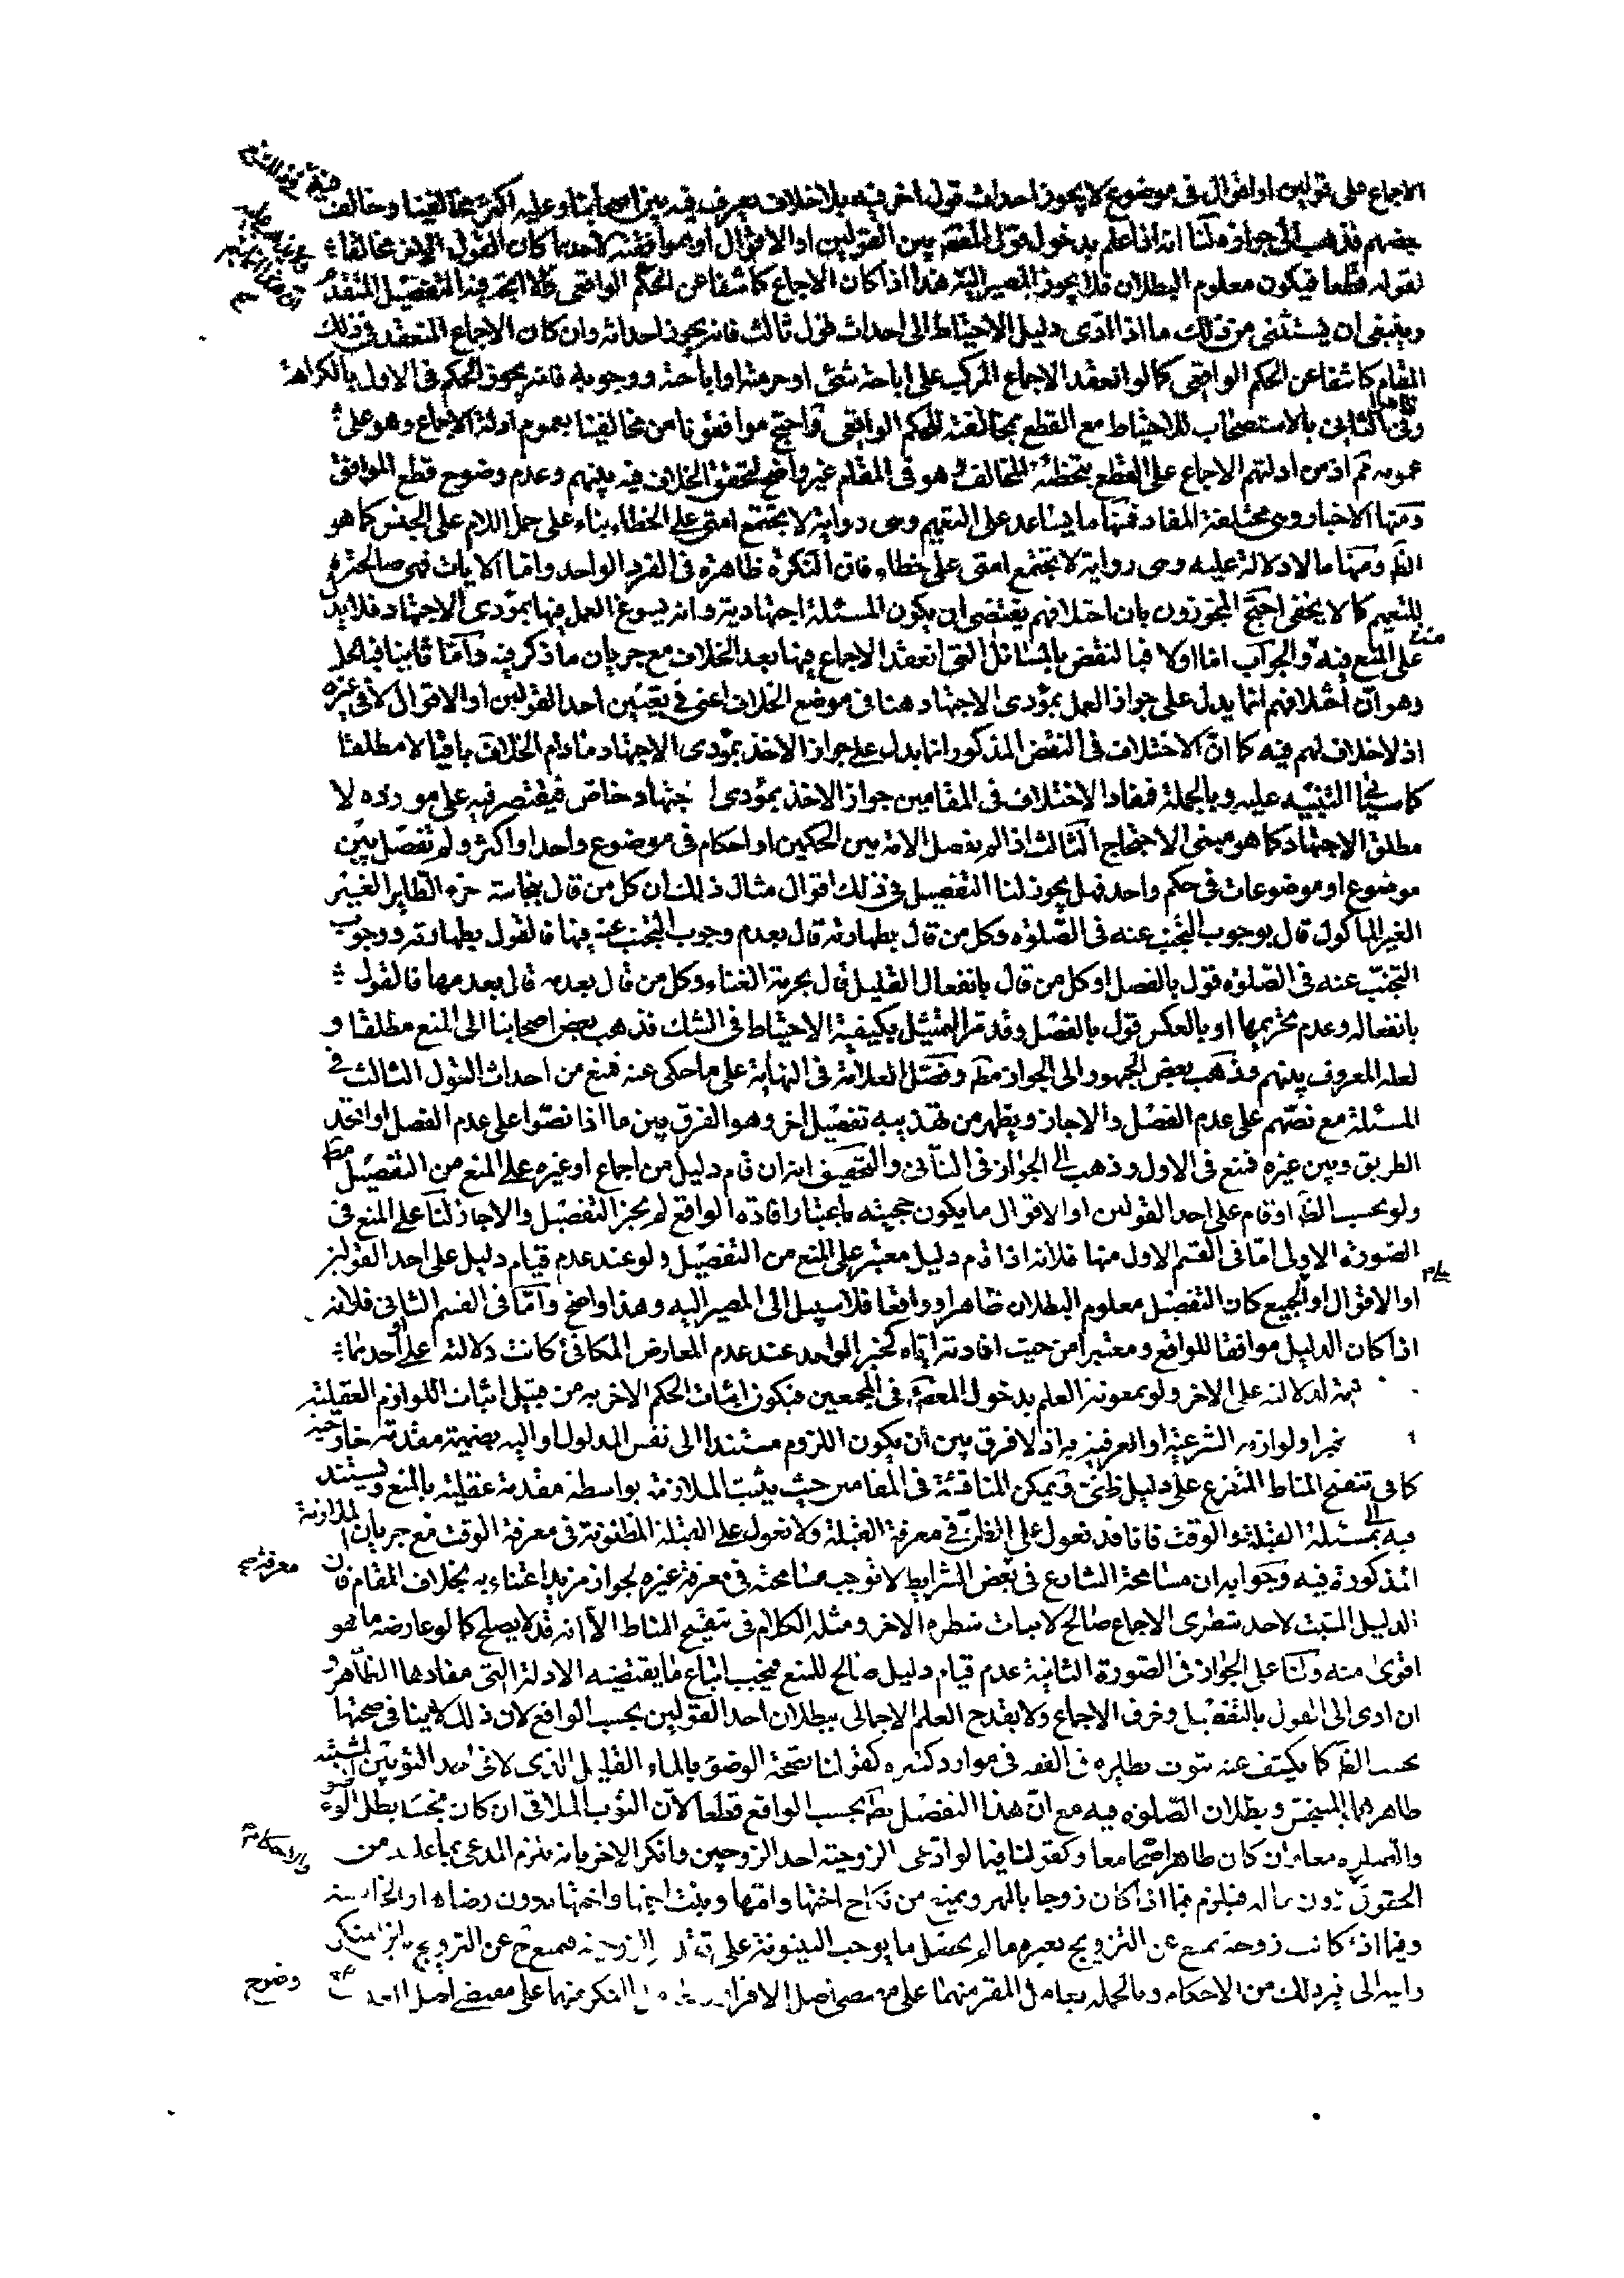 الاجماع على قولين او اقوال فى موضوع لا يجوز احداث قول اخر فيه بلا خلاف يعرف فيه بين اصحابنا وعليه اكثر مخالفينا وخالف
بعضهم فذهب الى جوازه لنا انه اذا علم بدخول قول المعصوم بين القولين او الاقوال او موافقته لاحدها كان القول الاخر مخالفا
لقوله قطعا فيكون معلوم البطلان فلا يجوز المصير اليه هذا اذا كان الاجماع كاشفا عن الحكم الواقعى والا اتجه فيه التفصيل المتقدم
وينبغى ان يستثنى من ذلك ما اذا ادى دليل الاحتياط الى احداث قول ثالث فانه يجوز احداثه وان كان الاجماع المنعقد فى ذلك
المقام كاشفا عن الحكم الواقعى كما لو انعقد الاجماع المركب على اباحة شئ او حرمته او اباحته ووجوبه فانه يجوز الحكم فى الاول بالكراهة
وفى الثانى بالاستصحاب للاحتياط مع القطع بمخالفته للحكم الواقعى واحتج موافقونا من مخالفينا بعموم ادلة الاجماع وهو على
عمومه ثم اذ من ادلتهم الاجماع على القطع بتخطئة المخالف وهو فى المقام غير واضح لتحقق الخلاف فيه بينهم وعدم وضوح قطع الموافق
ومنها الاخبار وهى مختلفة المفاد فمنها ما يساعد على التعميم وهى رواية لا يجتمع امتى على الخطاء بناء على حمل اللام على الجنس كما هو
الظ ومنها ما لا دلالة عليه وهى رواية لا تجتمع امتى على خطاء فان النكرة ظاهرة فى الفرد الواحد واما الايات فهى صالحة
للتعميم كما لا يخفى احتج المجوزون بان اختلافهم يقتضى ان يكون المسئلة اجتهادية وانه يسوغ العمل فيها بمؤدى الاجتهاد فلا يدل
على المنع فيه والجواب اما اولا فبالنقض بالمسائل التى انعقد الاجماع فيها بعد الخلاف مع جريان ما ذكر فيه واما ثانيا فبالحل
وهو ان اختلافهم انما يدل على جواز العمل بمؤدى الاجتهاد هنا فى موضع الخلاف اعنى فى تعيين احد القولين او الاقوال لا فى غيره
اذ لا خلاف لهم فيه كما ان الاختلاف فى النقض المذكور انما يدل على جواز الاخذ بمؤدى الاجتهاد ما دام الخلاف باقيا لا مطلقا
كما سيجئ التنبيه عليه وبالجملة فمفاد الاختلاف فى المقامين جواز الاخذ بمؤدى اجتهاد خاص فيقتصر فيه على مورده لا
مطلق الاجتهاد كما هو مبنى الاحتجاج الثالث اذا لم يفصل الامة بين الحكمين او احكام فى موضوع واحد او اكثر ولم تفصل بين
موضوع او موضوعات فى حكم واحد فهل يجوز لنا التفصيل فى ذلك اقوال مثال ذلك ان كل من قال بنجاسة خرء الطاير الغير
الغير الماكول قال بوجوب التجنب عنه فى الصلوة وكل من قال بطهارته قال بعدم وجوب التجنب عنه فيها فالقول بطهارته ووجوب
التجنب عنه فى الصلوة قول بالفصل او كل من قال بانفعال القليل قال بحرمة الغناء وكل من قال بعدمه قال بعدمها فالقول
بانفعاله وعدم تحريمها او بالعكس قول بالفصل وقد مر التمثيل بكيفية الاحتياط فى الشك فذهب بعض اصحابنا الى المنع مطلقا و
لعله المعروف بينهم وذهب بعض الجمهور الى الجواز مط وفصل العلامة فى النهاية على ما حكى عنه فمنع من احداث القول الثالث فى
المسئلة مع نصهم على عدم الفصل والا جاز ويظهر من تهذيبه تفصيل اخر وهو الفرق بين ما اذا نصوا على عدم الفصل او اتحد
الطريق وبين غيره فمنع فى الاول وذهب الى الجواز فى الثانى والتحقيق انه ان قام دليل من اجماع او غيره على المنع من التفصيل مط
ولو بحسب الظ او قام على احد القولين او الاقوال ما يكون حجيته باعتبار افادته الواقع لم يجز التفصيل والا جاز لنا على المنع فى
الصورة الاولى اما فى القسم الاول منها فلانه اذا قام دليل معتبر على المنع من التفصيل ولو عند عدم قيام دليل على احد القولين
او الاقوال او الجميع كان التفصيل معلوم البطلان ظاهرا وواقعا فلا سبيل الى المصير اليه وهذا واضح واما فى القسم الثانى فلانه
اذا كان الدليل موافقا للواقع ومعتبرا من حيث افادته اياه كخبر الواحد عند عدم المعارض المكافئ كانت دلالته على احدهما
لدلالته على الاخر ولو بمعونة العلم بدخول المعصوم فى المجمعين فيكون اثبات الحكم الاخر به من قبيل اثبات اللوازم العقلية
او لوازمه الشرعية او العرفية به اذ لا فرق بين ان يكون اللزوم مستندا الى نفس المدلول او اليه بضميمة مقدمة خارجية
كما فى تنقيح المناط المتفرع على دليل ظنى ويمكن المناقشة فى المقامين حيث يثبت الملازمة بواسطة مقدمة عقلية بالمنع ويستند
فيه الى مسئلة القبلة والوقت فانا قد نعول على الظن فى معرفة القبلة ولا نعول على القبلة المظنونة فى معرفة الوقت مع جريان الملازمة
المذكورة فيه وجوابه ان مسامحة الشارع فى بعض الشرايط لا توجب مسامحته فى معرفة غيره لجواز مزيد اعتناءه به بخلاف المقام فان
الدليل المثبت لاحد شطرى الاجماع صالح لاثبات شطره الاخر ومثله الكلام فى تنقيح المناط الا انه قد لا يصلح كما لو عارضه ما هو
اقوى منه ولنا على الجواز فى الصورة الثانية عدم قيام دليل صالح للمنع فيجب اتباع ما يقتضيه الادلة التى مفادها الظاهر و
ان ادى الى القول بالتفصيل وخرق الاجماع ولا يقدح العلم الاجمالى ببطلان احد القولين بحسب الواقع لان ذلك لا ينافى صحتها
بحسب الظ كما يكشف عنه ثبوت نظايره فى الفقه فى موارد كثيرة كقولنا بصحة الوضوء بالماء القليل الذى لاقى احد الثوبين المشتبه
طاهرهما بالمتنجس وبطلان الصلوة فيه مع ان هذا التفصيل بط بحسب الواقع قطعا لان الثوب الملاقى ان كان نجسا بطل الوضوء
والصلوة معا وان كان طاهرا صحا معا وكقولنا فيما لو ادعى الزوجية احد الزوجين وانكر الاخر بانه يلزم المدعى بما عليه من
الحقوق دون ماله فيلزم فيما اذا كان زوجا بالمهر ويمنع من نكاح اختها وامها وبنت اخيها واختها بدون رضاها والخامسة
وفيما اذا كانت زوجة تمنع عن التزويج بغيره ما لم يحصل ما يوجب البينونة على تقدير الزوجية
الى غير ذلك من الاحكام وبالجملة يعامل المقر منهما على مقتضى اصل الاقرار والمنكر منهما على مقتضى اصل